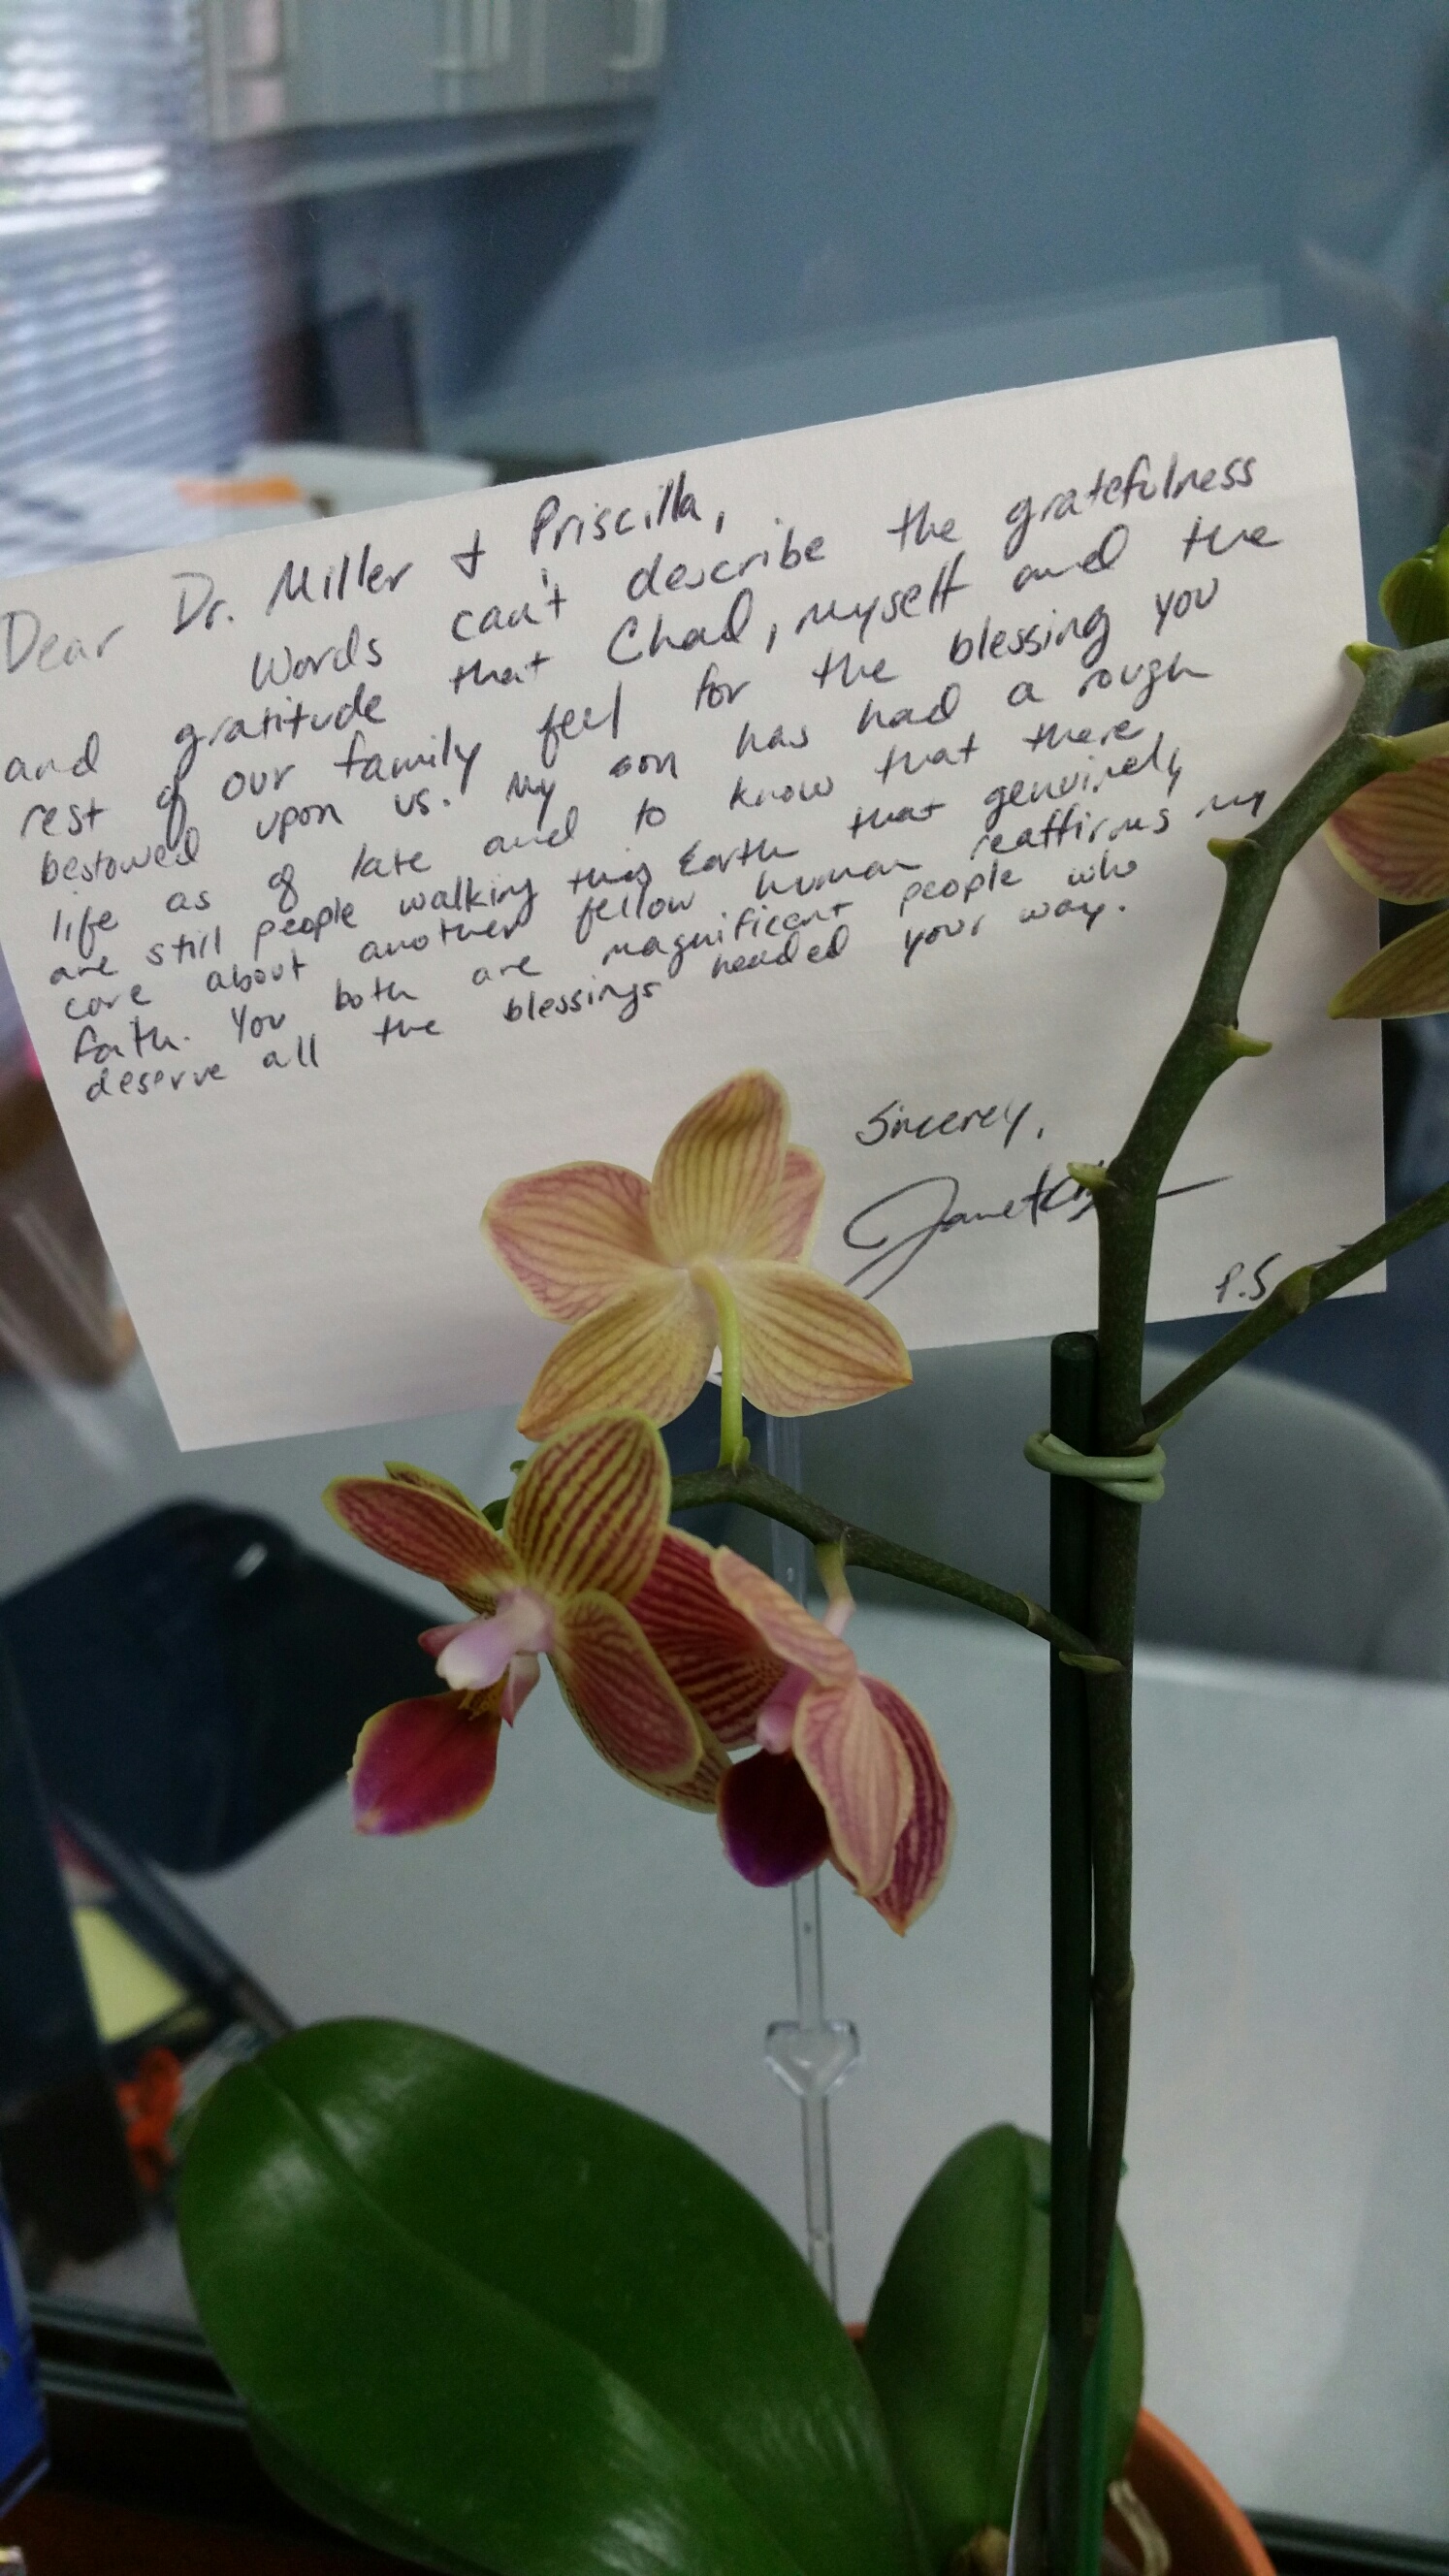 Dear Dr. Miller + Priscilla,
Words can't describe the gratefulness
and gratitude that Chad, myself and the
rest of our family feel for the blessing you
bestowed upon us. My son has had a rough
life as of late and to know that there
are still people walking this Earth that genuinely
care about another fellow human reaffirms my
faith. You both are magnificent people who
deserve all the blessings headed your way.
Sincerey,
Janet
P.S